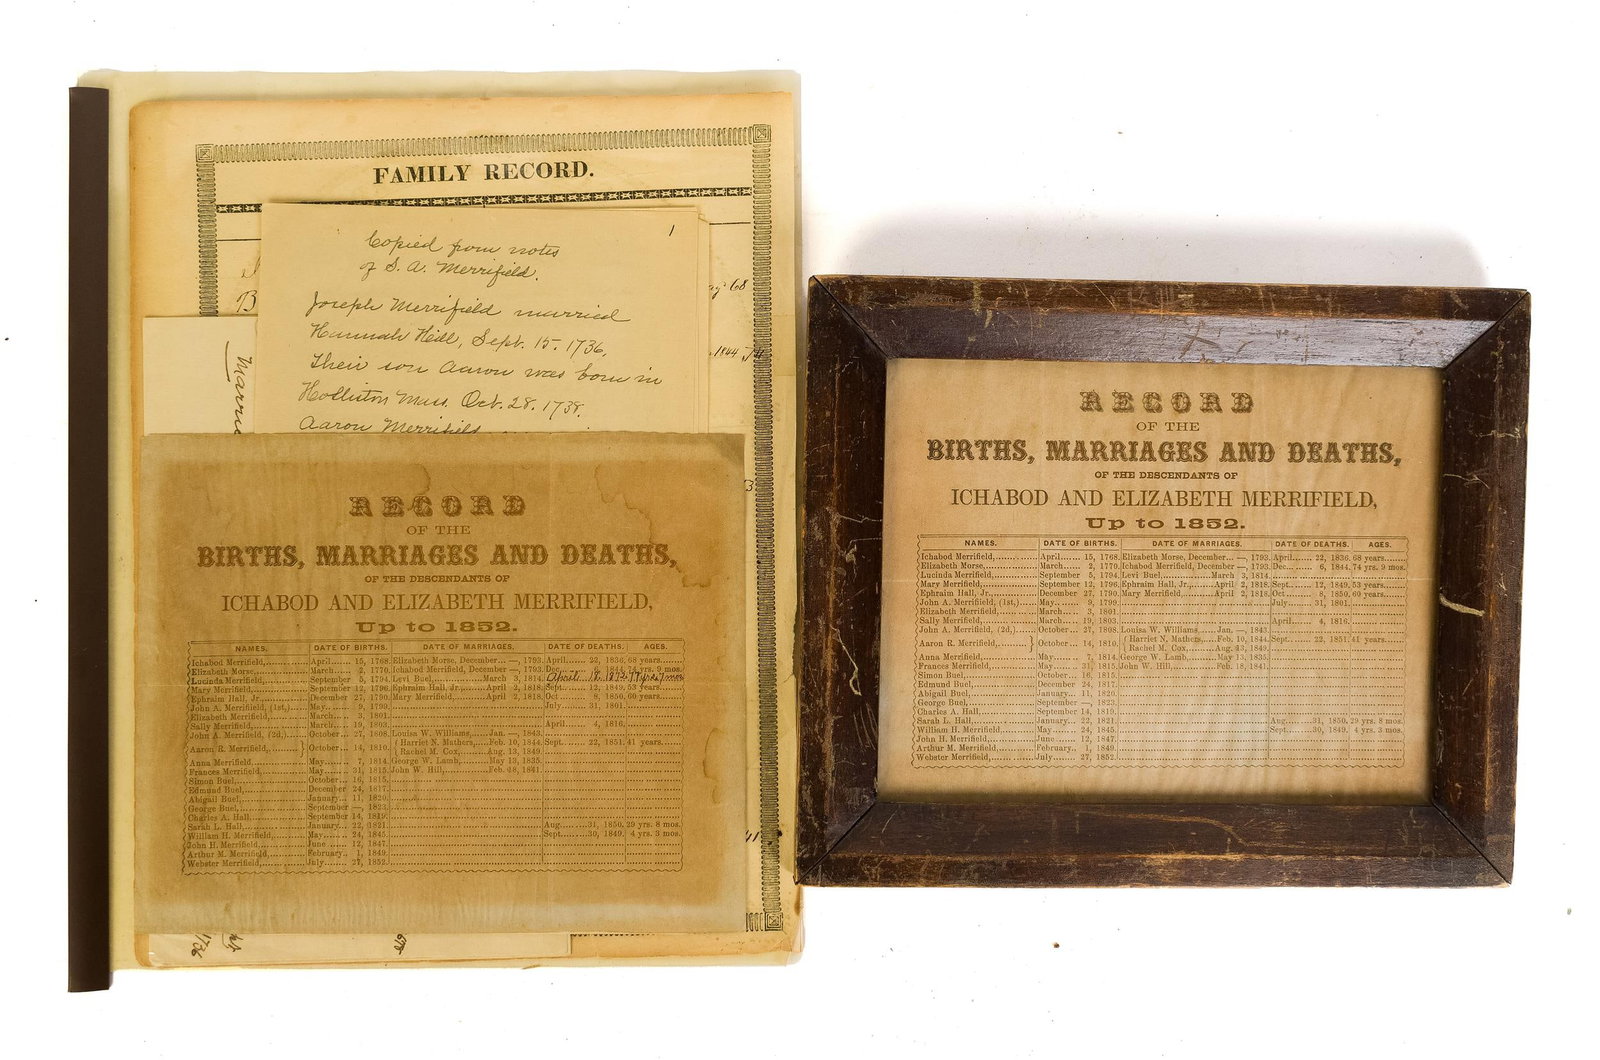 FAMILY RECORD.
1
Copied from notes
of S. A. Merrifield.
Joseph Merrifield married
Hannah Hill, Sept. 15. 1736.
Their son Aaron was born in
Holliston Mass. Oct. 28. 1738.
Aaron Merrifield
B
68
1844 74
RECORD
OF THE
BIRTHS, MARRIAGES AND DEATHS,
OF THE DESCENDANTS OF
ICHABOD AND ELIZABETH MERRIFIELD,
Up to 1852.
NAMES. DATE OF BIRTHS. DATE OF MARRIAGES. DATE OF DEATHS. AGES.
Ichabod Merrifield, April 15, 1768. Elizabeth Morse, December —, 1793. April 22, 1836. 68 years.
Elizabeth Morse, March 2, 1770. Ichabod Merrifield, December —, 1793. Dec. 6, 1844. 74 yrs. 9 mos.
Lucinda Merrifield, September 5, 1794. Levi Buel, March 3, 1814. April 18, 1872
Mary Merrifield, September 12, 1796. Ephraim Hall, Jr., April 2, 1818. Sept. 12, 1849. 53 years.
Ephraim Hall, Jr. December 27, 1790. Mary Merrifield, April 2, 1818. Oct 8, 1850. 60 years.
John A. Merrifield, (1st.) May 9, 1799. July 31, 1801.
Elizabeth Merrifield, March 3, 1801.
Sally Merrifield, March 19, 1803. April 4, 1816.
John A. Merrifield, (2d,) October 27, 1808. Louisa W. Williams, Jan. —, 1843.
Aaron R. Merrifield, October 14, 1810. Harriet N. Mathers, Feb. 10, 1844. Sept. 22, 1851. 41 years.
Rachel M. Cox, Aug. 13, 1849.
Anna Merrifield, May 7, 1814. George W. Lamb, May 13, 1835.
Frances Merrifield, May 31, 1815. John W. Hill, Feb. 18, 1841.
Simon Buel, October 16, 1815.
Edmund Buel, December 24, 1817.
Abigail Buel, January 11, 1820.
George Buel, September —, 1823.
Charles A. Hall, September 14, 1819.
Sarah L. Hall, January 22, 1821. Aug. 31, 1850. 29 yrs. 8 mos.
William H. Merrifield, May 24, 1845. Sept. 30, 1849. 4 yrs. 3 mos.
John H. Merrifield, June 12, 1847.
Arthur M. Merrifield, February 1, 1849.
Webster Merrifield, July 27, 1852.
RECORD
OF THE
BIRTHS, MARRIAGES AND DEATHS,
OF THE DESCENDANTS OF
ICHABOD AND ELIZABETH MERRIFIELD,
Up to 1852.
NAMES. DATE OF BIRTHS. DATE OF MARRIAGES. DATE OF DEATHS. AGES.
Ichabod Merrifield, April 15, 1768. Elizabeth Morse, December —, 1793. April 22, 1836. 68 years.
Elizabeth Morse, March 2, 1770. Ichabod Merrifield, December —, 1793. Dec. 6, 1844. 74 yrs. 9 mos.
Lucinda Merrifield, September 5, 1794. Levi Buel, March 3, 1814.
Mary Merrifield, September 12, 1796. Ephraim Hall, Jr. April 2, 1818. Sept. 12, 1849. 53 years.
Ephraim Hall, Jr. December 27, 1790. Mary Merrifield, April 2, 1818. Oct 8, 1850. 60 years.
John A. Merrifield, (1st.) May 9, 1799 July 31, 1801.
Elizabeth Merrifield, March 3, 1801.
Sally Merrifield, March 19, 1803. April 4, 1816.
John A. Merrifield, (2d,) October 27, 1808. Louisa W. Williams, Jan. —, 1843.
Aaron R. Merrifield, October 14, 1810. Harriet N. Mathers, Feb. 10, 1844. Sept. 22, 1851. 41 years.
Rachel M. Cox, Aug. 13, 1849.
Anna Merrifield, May 7, 1814. George W. Lamb, May 13, 1835.
Frances Merrifield, May 31, 1815. John W. Hill, Feb. 18, 1841.
Simon Buel, October 16, 1815.
Edmund Buel, December 24, 1817.
Abigail Buel, January 11, 1820.
George Buel, September —, 1823.
Charles A. Hall, September 14, 1819.
Sarah L. Hall, January 22, 1821. Aug. 31, 1850. 29 yrs. 8 mos.
William H. Merrifield, May 24, 1845. Sept. 30, 1849. 4 yrs. 3 mos.
John H. Merrifield, June 12, 1847.
Arthur M. Merrifield, February 1, 1849.
Webster Merrifield, July 27, 1852.